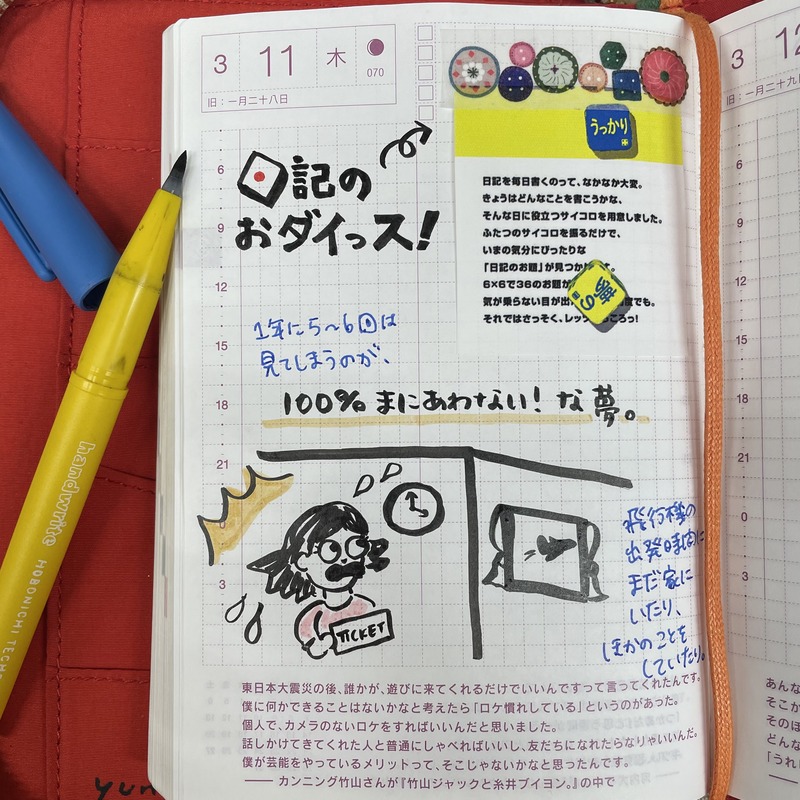 3 11 木
070
旧:一月二十八日
日記の
おダイっス!
うっかり
日記を毎日書くのって、なかなか大変。
きょうはどんなことを書こうかな、
そんな日に役立つサイコロを用意しました。
ふたつのサイコロを振るだけで、
いまの気分にぴったりな
「日記のお題」が見つか
6×6で36のお題が
気が乗らない目が出 度でも。
それではさっそく、レッツ ころっ!
1年に5〜6回は
見てしまうのが、
100% まにあわない! な 夢。
TICKET
飛行機の
出発時間に
まだ家に
いたり、
ほかのことを
していたり。
6
9
12
15
18
21
0
3
東日本大震災の後、誰かが、遊びに来てくれるだけでいいんですって言ってくれたんです。
僕に何かできることはないかなと考えたら「ロケ慣れしている」というのがあった。
個人で、カメラのないロケをすればいいんだと思いました。
話しかけてきてくれた人と普通にしゃべればいいし、友だちになれたらなりゃいいんだ。
僕が芸能をやっているメリットって、そこじゃないかなと思ったんです。
── カンニング竹山さんが『竹山ジャックと糸井ブイヨン。』の中で
handwrite HOBONICHI TECH
3 12
旧:一月二十九
6
9
12
15
18
21
0
3
あんな
そこか
そのほ
どんな
「うれ